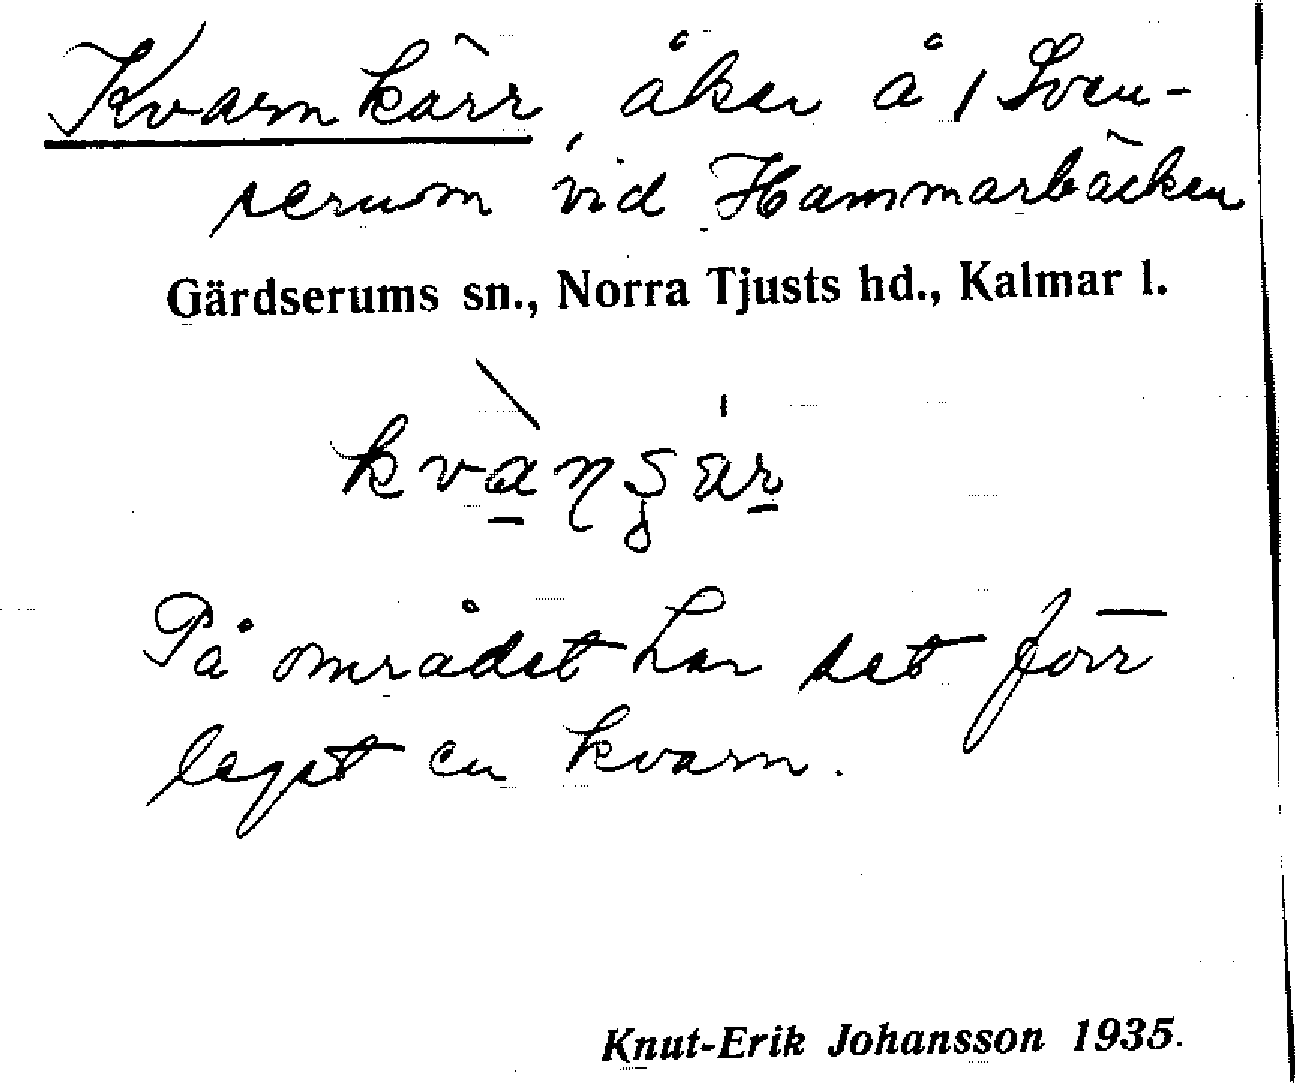 Kvarnkärr, åker å 1 Sven-
serum vid Hammarbäcken
Gärdserums sn., Norra Tjusts hd., Kalmar l.
På området har det förr
legat en kvarn.
Knut-Erik Johansson 1935.